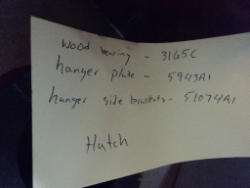 wood bearing - 3165C
hanger plate - 5943A1
hanger side brackets - 51074A1
Hutch